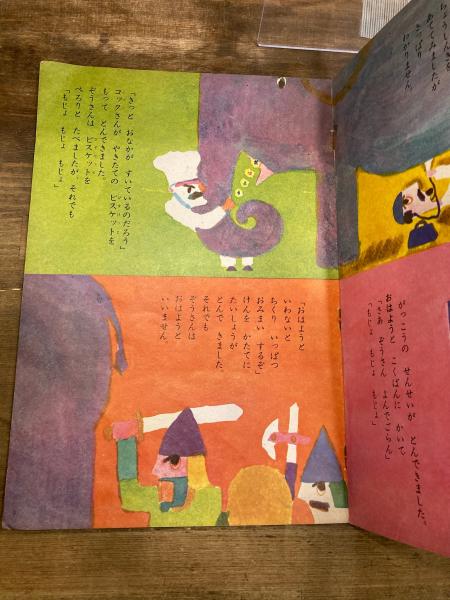 ちょうしんきを
あてて みましたが
さっぱり
わかりません。
がっこうの せんせいが とんできました。
おはようと こくばんに かいて
「さあ ぞうさん よんでごらん」
「もじょ もじょ もじょ」
「きっと おなかが すいているのだろう」
コックさんが やきたての ビスケットを
もって とんできました。
ぞうさんは ビスケットを
ぺろりと たべましたが、それでも
「もじょ もじょ もじょ」
「おはようと
いわないと
ちくり いっぱつ
おみまい するぞ」
たいしょうが
けんを かたてに
とんで きました。
それでも
ぞうさんは
おはようと
いいません。